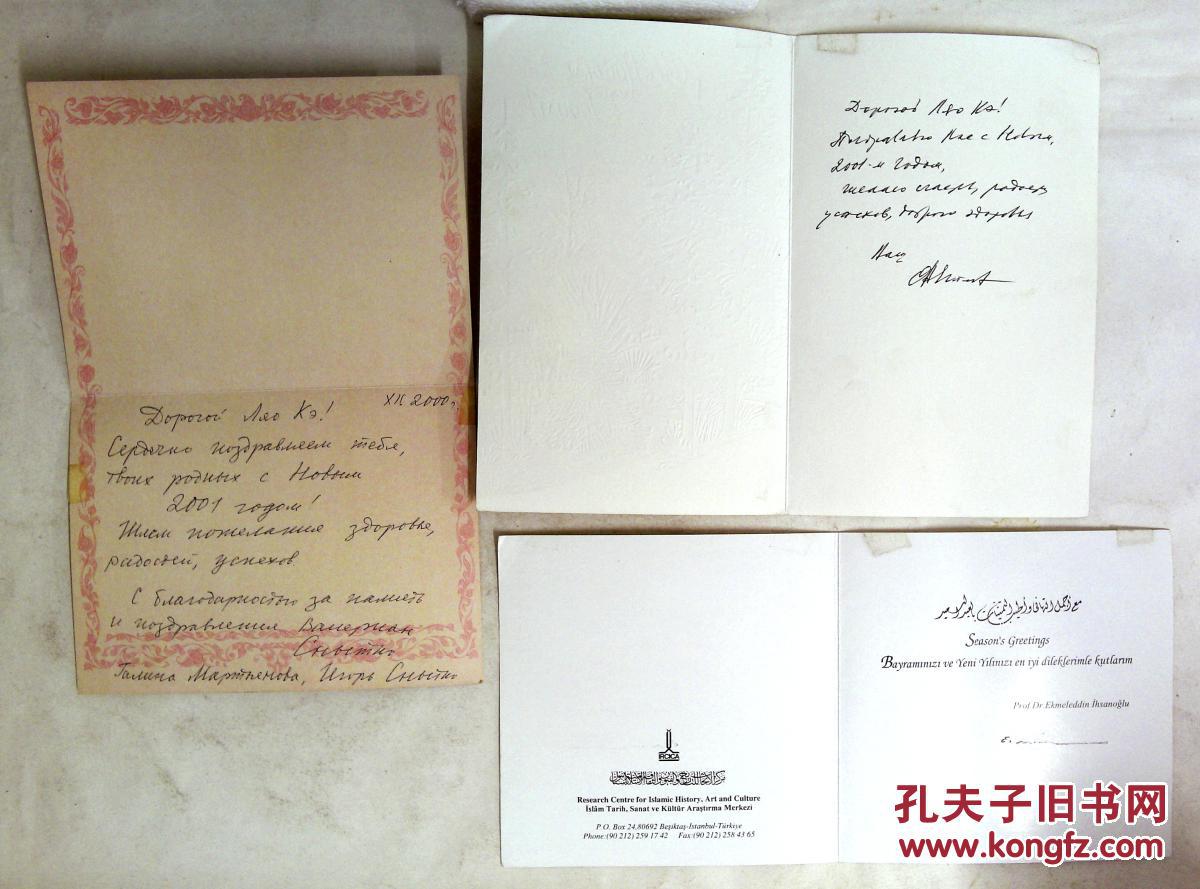 XII 2000 г.
Дорогой Ляо Кэ!
Сердечно поздравляем тебя,
твоих родных с Новым
2001 годом!
Шлем пожелания здоровья,
радостей, успехов.
С благодарностью за память
и поздравления Валериан
Снытко
Галина Мартьянова, Игорь Снытко
Дорогой Ляо Кэ!
Поздравляю Вас с Новым,
2001-м годом,
желаю счастья, радости
успехов, доброго здоровья
Ваш
IRCICA
Research Centre for Islamic History, Art and Culture
İslâm Tarih, Sanat ve Kültür Araştırma Merkezi
P.O. Box 24,80692 Beşiktaş-İstanbul-Türkiye
Phone:(90 212) 259 17 42 Fax:(90 212) 258 43 65
مع أجمل التهاني وأطيب التمنيات
Season's Greetings
Bayramınızı ve Yeni Yılınızı en iyi dileklerimle kutlarım
Prof.Dr.Ekmeleddin İhsanoğlu
孔夫子旧书网
www.kongfz.com